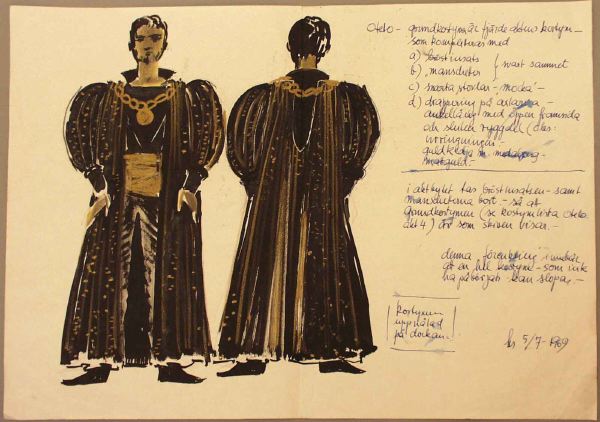 Otelo - grundkostym är fjärde aktens kostym -
som kompletteras med
a) bröstinsats
b) manschetter } svart sammet
c) svarta stövlar - mocka -
d) drapering på axlarna -
ankellång med öppen framsida
och sluten ryggdel (obs.
guldkedja m medaljong -
matguld -
i aktbytet tas bröstinsatsen - samt
manschetterna bort - så att
grundkostymen (se kostymlista Otelo
akt 4) är som skissen visar. -
denna förenkling innebär
att en hel kostym - som inte
ha påbörjats kan slopas, -
kostymen
uppritad
på dockan -
5/7 - 1969